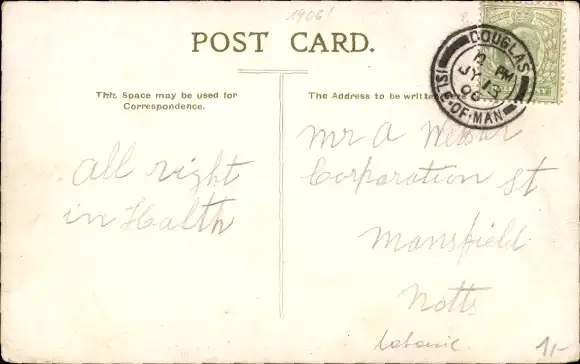 1906!
POST CARD.
This Space may be used for
Correspondence.
The Address to be
DOUGLAS
PM
JY 13
06
ISLE-OF-MAN
all right
in Health
Mr A
Corparation St
Mansfield
Notts
1/-